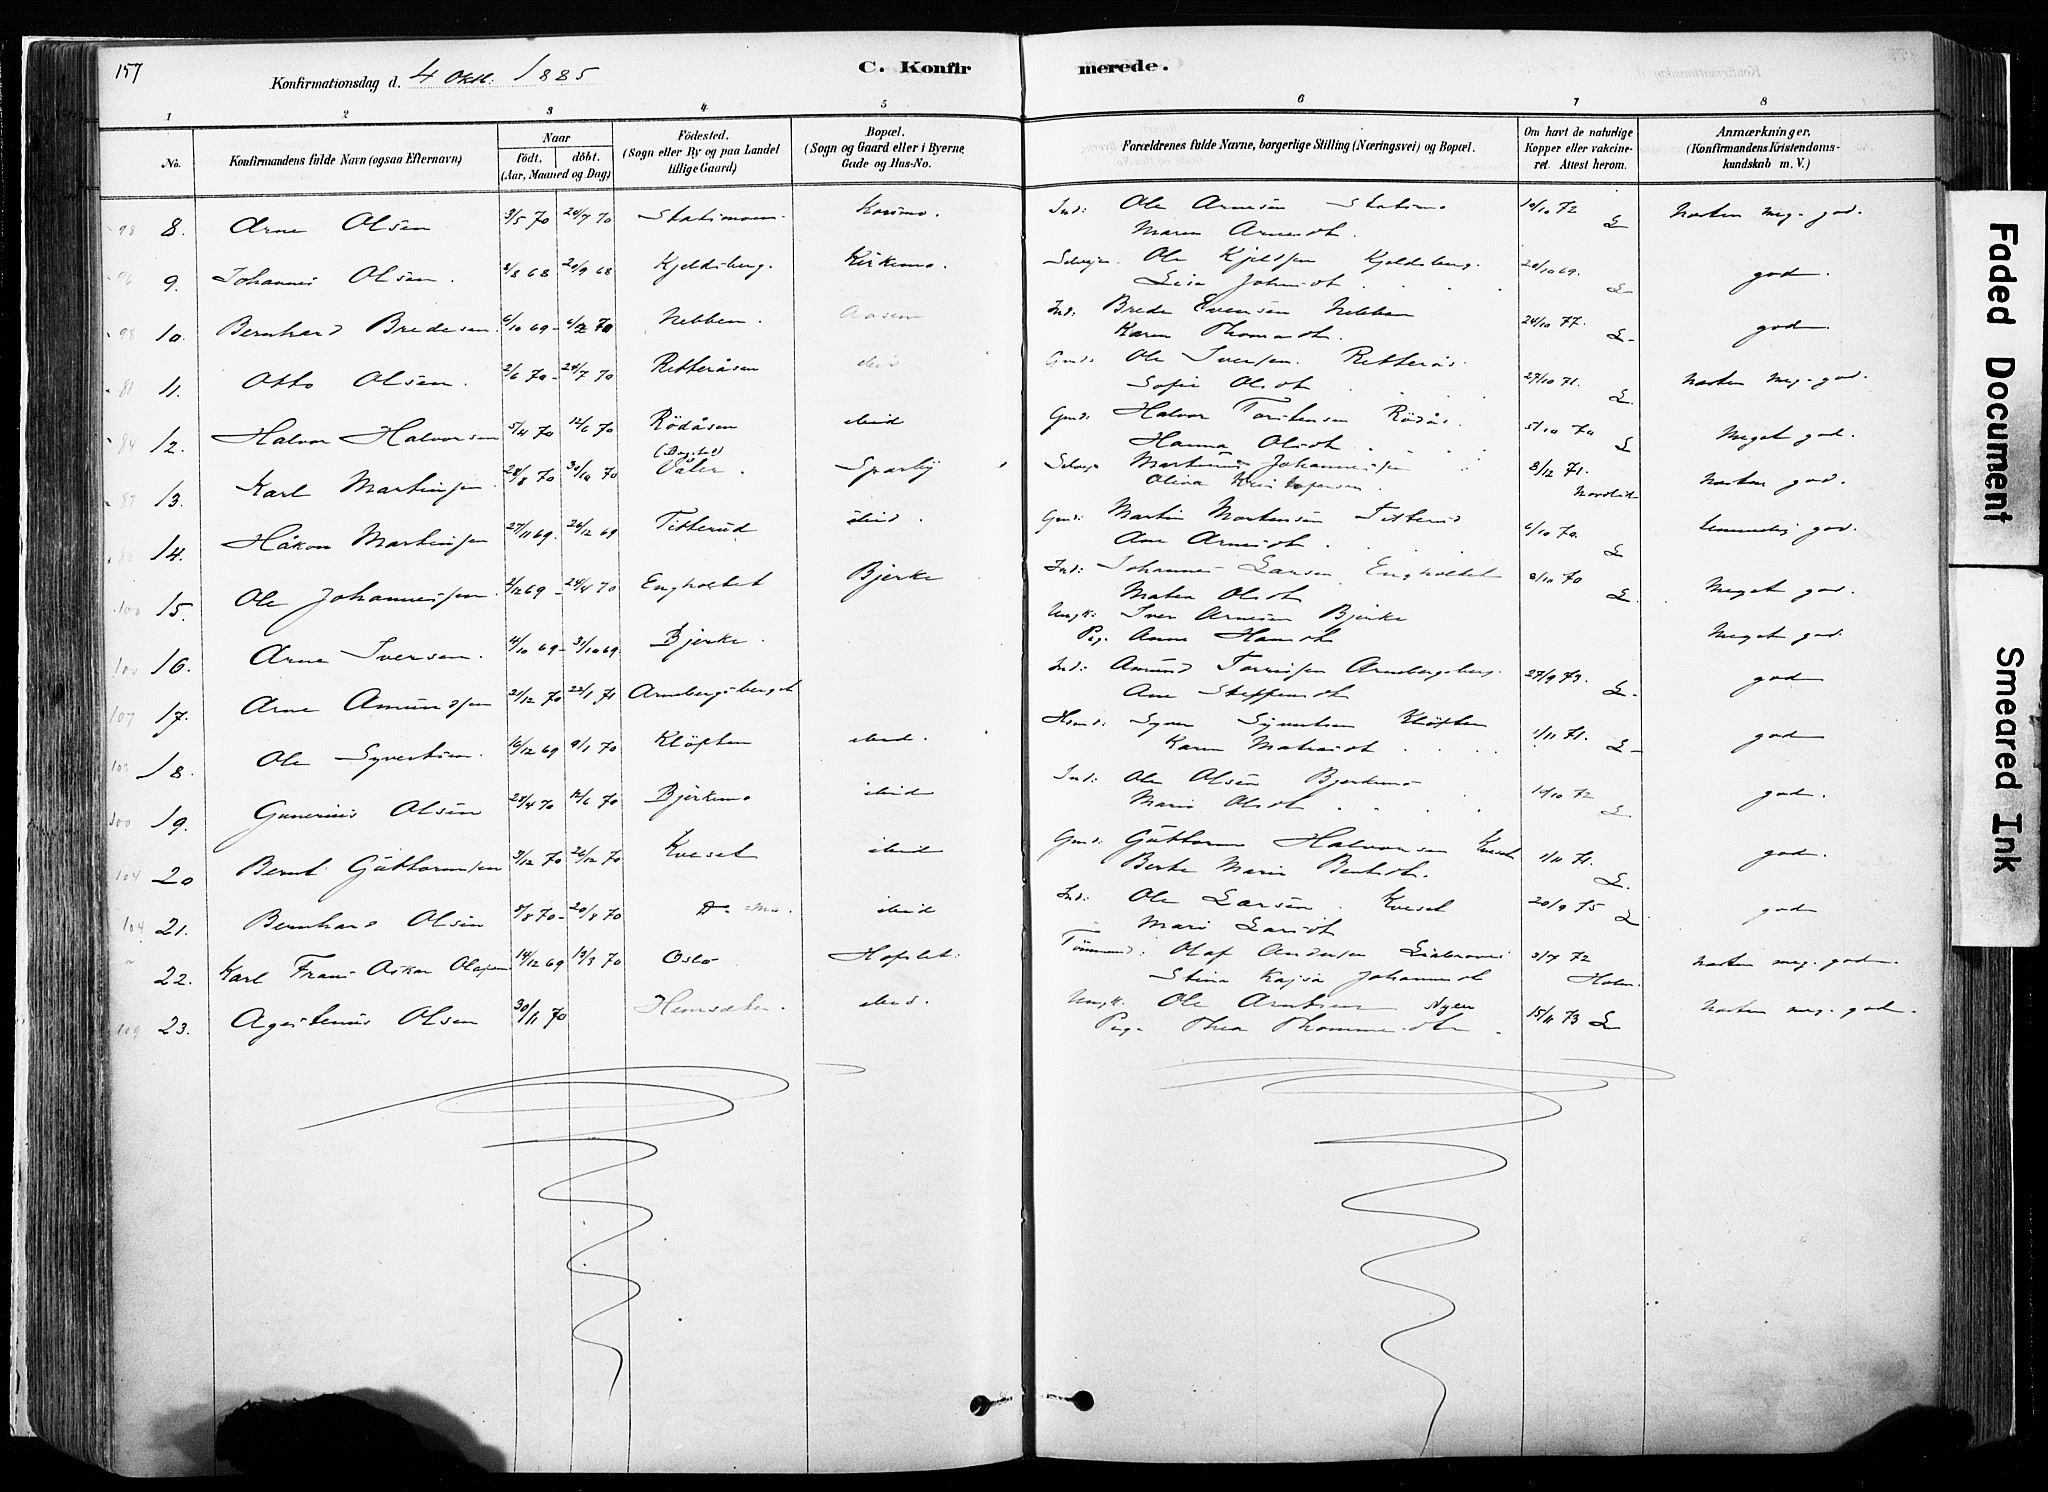 157
Konfirmationsdag d. 4 Oktb. 1885
C. Konfirmerede.
1 2 3 4 5 6 7 8
No.
Konfirmandens fulde Navn (ogsaa Efternavn)
Naar
født. døbt.
(Aar, Maaned og Dag)
Födested.
(Sogn eller By og paa Landet
tillige Gaard)
Bopæl.
(Sogn og Gaard eller i Byerne
Gade og Hus-No.
Forældrenes fulde Navne, borgerlige Stilling (Næringsvei) og Bopæl.
Om havt de naturlige
Kopper eller vakcine-
ret. Attest herom.
Anmærkninger.
(Konfirmandens Kristendoms-
kundskab m. V.)
98 8. Arne Olsen 3/5 70 24/7 70 Ind: Ole Arnesen 10/10 72 L Næsten meg. god.
Maren Arnesdt.
96 9. Johannes Olsen. 8/8 68 20/9 68 Kjeldsberg. Kirkemo. Selvejer Ole Kjeldsen Kjeldsberg. 20/10 69. L god.
Lisa Johnsdt.
98 10. Bernhard Bredesen. 6/10 69 6/2 70 Nebben. Aasen Ind: Brede Evensen Nebben 24/10 77. L god.
Karen Thomasdt.
81 11. Otto Olsen. 2/6 70 24/7 70 Retteråsen ibid Gmd: Ole Iversen Retterås. 27/10 71. L. Næsten meg. god.
Sofie Olsdt.
84 12. Halvor Halvorsen 5/4 70 12/6 70 Rödåsen ibid Gmd: Halvor Torstensen Rödås. 5/10 70 L Meget god.
Hanna Olsdt.
87 13. Karl Martinsen 28/8 70 30/10 70 Våler. Sparby Selvej: Martinus Johannessen 8/12 71. Næsten god.
Olina
82 14. Håkon Martinsen 27/11 69. 26/12 69 Titterud ibid. Gmd: Martin Mortensen Titterud 6/10 70. L Temmelig god.
Ane Arnesdt.
100 15. Ole Johannessen. 2/12 69 24/4 70 Engholtet Bjerke Ind: Johannes Larsen Engholtet 8/10 70 L. Meget god.
Matea Olsdt
100 16. Arne Iversen. 4/10 69 31/10 69. Bjerke. Ungk: Iver Arnesen Bjerke Meget god.
Pig. Anne Hansdt
107 17. Arne Amundsen 21/12 70 22/1 71 Arnebergsberget Ind: Amund Arnebergsberg. 27/9 73. L god
Ane Steffensdt.
18. Ole Syvertsen. 16/12 69 9/1 70 Klöften ibid. Syver Syvertsen Klöften 1/11 71. L god
Karen
100 19. Gunerius Olsen 28/4 70 12/6 70 Bjerkemo ibid Ind: Ole Olsen Bjerkemo 10/10 72 L god.
Marie Olsdt
104 20 Bernt Guttormsen 3/12 70 26/12 70 Kveset ibid Gmd: Guttorm Halvorsen Kveset 1/11 71. L. god.
Berte Marie Berntsdt.
104 21. Bernhard Olsen 8/8 70 20/8 70 ibid Ind: Ole Larsen Kveset 20/9 75 L god
Mari Larsdt
22. Karl Frans Oskar Olafsen 14/12 69 13/3 70 Oslo Hofslet: Tömmermd: Olaf Andersen 3/7 72 Næsten meg. god.
Stina Kajsa Johannesdt Holm.
109 23. Agustenus Olsen 30/11 70 Hemsæter. ibid. Ungk. Ole Arntsen Nyen 15/11 73 L Næsten meg. god.
Pige Thea Thommesdtr
Faded Document
Smeared Ink